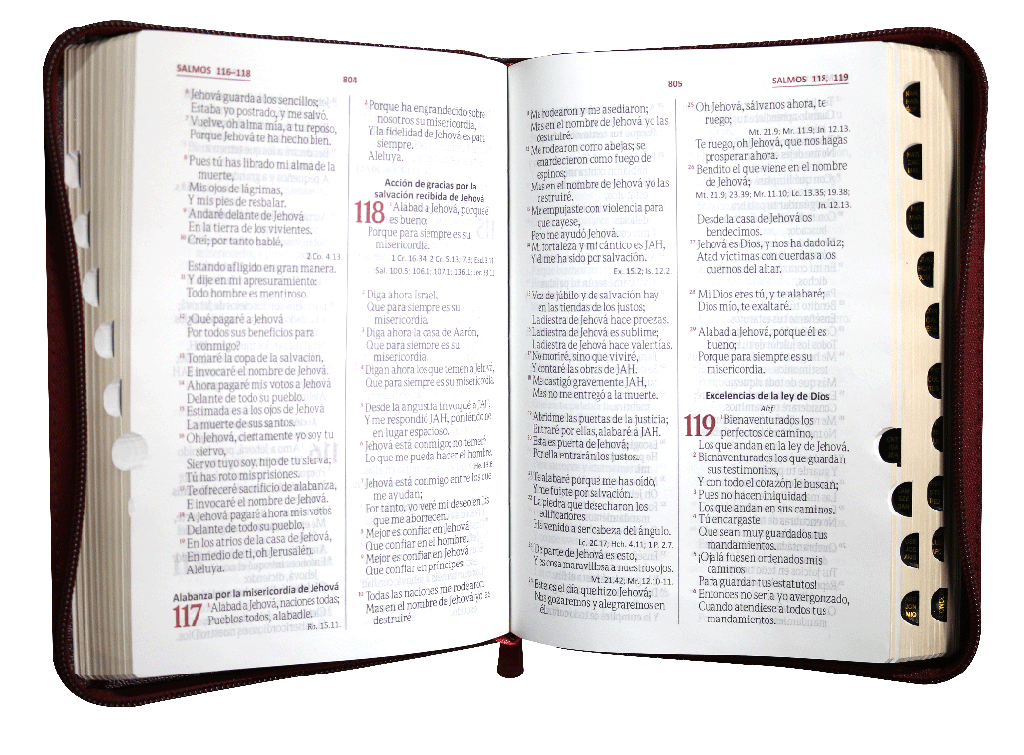 SALMOS 116–118
804
⁶Jehová guarda a los sencillos;
Estaba yo postrado, y me salvó.
⁷Vuelve, oh alma mía, a tu reposo,
Porque Jehová te ha hecho bien.
⁸Pues tú has librado mi alma de la
muerte,
Mis ojos de lágrimas,
Y mis pies de resbalar.
⁹Andaré delante de Jehová
En la tierra de los vivientes.
¹⁰Creí; por tanto hablé,
2 Co. 4.13.
Estando afligido en gran manera.
¹¹Y dije en mi apresuramiento:
Todo hombre es mentiroso.
¹²¿Qué pagaré a Jehová
Por todos sus beneficios para
conmigo?
¹³Tomaré la copa de la salvación,
E invocaré el nombre de Jehová.
¹⁴Ahora pagaré mis votos a Jehová
Delante de todo su pueblo.
¹⁵Estimada es a los ojos de Jehová
La muerte de sus santos.
¹⁶Oh Jehová, ciertamente yo soy tu
siervo,
Siervo tuyo soy, hijo de tu sierva;
Tú has roto mis prisiones.
¹⁷Te ofreceré sacrificio de alabanza,
E invocaré el nombre de Jehová.
¹⁸A Jehová pagaré ahora mis votos
Delante de todo su pueblo,
¹⁹En los atrios de la casa de Jehová,
En medio de ti, oh Jerusalén.
Aleluya.
Alabanza por la misericordia de Jehová
117 ¹Alabad a Jehová, naciones todas;
Pueblos todos, alabadle.
Ro. 15.11.
²Porque ha engrandecido sobre
nosotros su misericordia,
Y la fidelidad de Jehová es para
siempre.
Aleluya.
Acción de gracias por la
salvación recibida de Jehová
118 ¹Alabad a Jehová, porque él
es bueno;
Porque para siempre es su
misericordia.
1 Cr. 16.34; 2 Cr. 5.13; 7.3; Esd. 3.11;
Sal. 100.5; 106.1; 107.1; 136.1; Jer. 33.11.
²Diga ahora Israel,
Que para siempre es su
misericordia.
³Diga ahora la casa de Aarón,
Que para siempre es su
misericordia.
⁴Digan ahora los que temen a Jehová,
Que para siempre es su misericordia.
⁵Desde la angustia invoqué a JAH,
Y me respondió JAH, poniéndome
en lugar espacioso.
⁶Jehová está conmigo; no temeré
Lo que me pueda hacer el hombre.
He. 13.6.
⁷Jehová está conmigo entre los que
me ayudan;
Por tanto, yo veré mi deseo en los
que me aborrecen.
⁸Mejor es confiar en Jehová
Que confiar en el hombre.
⁹Mejor es confiar en Jehová
Que confiar en príncipes.
¹⁰Todas las naciones me rodearon;
Mas en el nombre de Jehová yo las
destruiré.
805
SALMOS 118, 119
¹¹Me rodearon y me asediaron;
Mas en el nombre de Jehová yo las
destruiré.
¹²Me rodearon como abejas; se
enardecieron como fuego de
espinos;
Mas en el nombre de Jehová yo las
destruiré.
¹³Me empujaste con violencia para
que cayese,
Pero me ayudó Jehová.
¹⁴Mi fortaleza y mi cántico es JAH,
Y él me ha sido por salvación.
Ex. 15.2; Is. 12.2.
¹⁵Voz de júbilo y de salvación hay
en las tiendas de los justos;
La diestra de Jehová hace proezas.
¹⁶La diestra de Jehová es sublime;
La diestra de Jehová hace valentías.
¹⁷No moriré, sino que viviré,
Y contaré las obras de JAH.
¹⁸Me castigó gravemente JAH,
Mas no me entregó a la muerte.
¹⁹Abridme las puertas de la justicia;
Entraré por ellas, alabaré a JAH.
²⁰Esta es puerta de Jehová;
Por ella entrarán los justos.
²¹Te alabaré porque me has oído,
Y me fuiste por salvación.
²²La piedra que desecharon los
edificadores
Ha venido a ser cabeza del ángulo.
Lc. 20.17; Hch. 4.11; 1 P. 2.7.
²³De parte de Jehová es esto,
Y es cosa maravillosa a nuestros ojos.
Mt. 21.42; Mr. 12.10–11.
²⁴Este es el día que hizo Jehová;
Nos gozaremos y alegraremos en
él.
²⁵Oh Jehová, sálvanos ahora, te
ruego;
Mt. 21.9; Mr. 11.9; Jn. 12.13.
Te ruego, oh Jehová, que nos hagas
prosperar ahora.
²⁶Bendito el que viene en el nombre
de Jehová;
Mt. 21.9; 23.39; Mr. 11.10; Lc. 13.35; 19.38;
Jn. 12.13.
Desde la casa de Jehová os
bendecimos.
²⁷Jehová es Dios, y nos ha dado luz;
Atad víctimas con cuerdas a los
cuernos del altar.
²⁸Mi Dios eres tú, y te alabaré;
Dios mío, te exaltaré.
²⁹Alabad a Jehová, porque él es
bueno;
Porque para siempre es su
misericordia.
Excelencias de la ley de Dios
Alef
119 ¹Bienaventurados los
perfectos de camino,
Los que andan en la ley de Jehová.
²Bienaventurados los que guardan
sus testimonios,
Y con todo el corazón le buscan;
³Pues no hacen iniquidad
Los que andan en sus caminos.
⁴Tú encargaste
Que sean muy guardados tus
mandamientos.
⁵¡Ojalá fuesen ordenados mis
caminos
Para guardar tus estatutos!
⁶Entonces no sería yo avergonzado,
Cuando atendiese a todos tus
mandamientos.